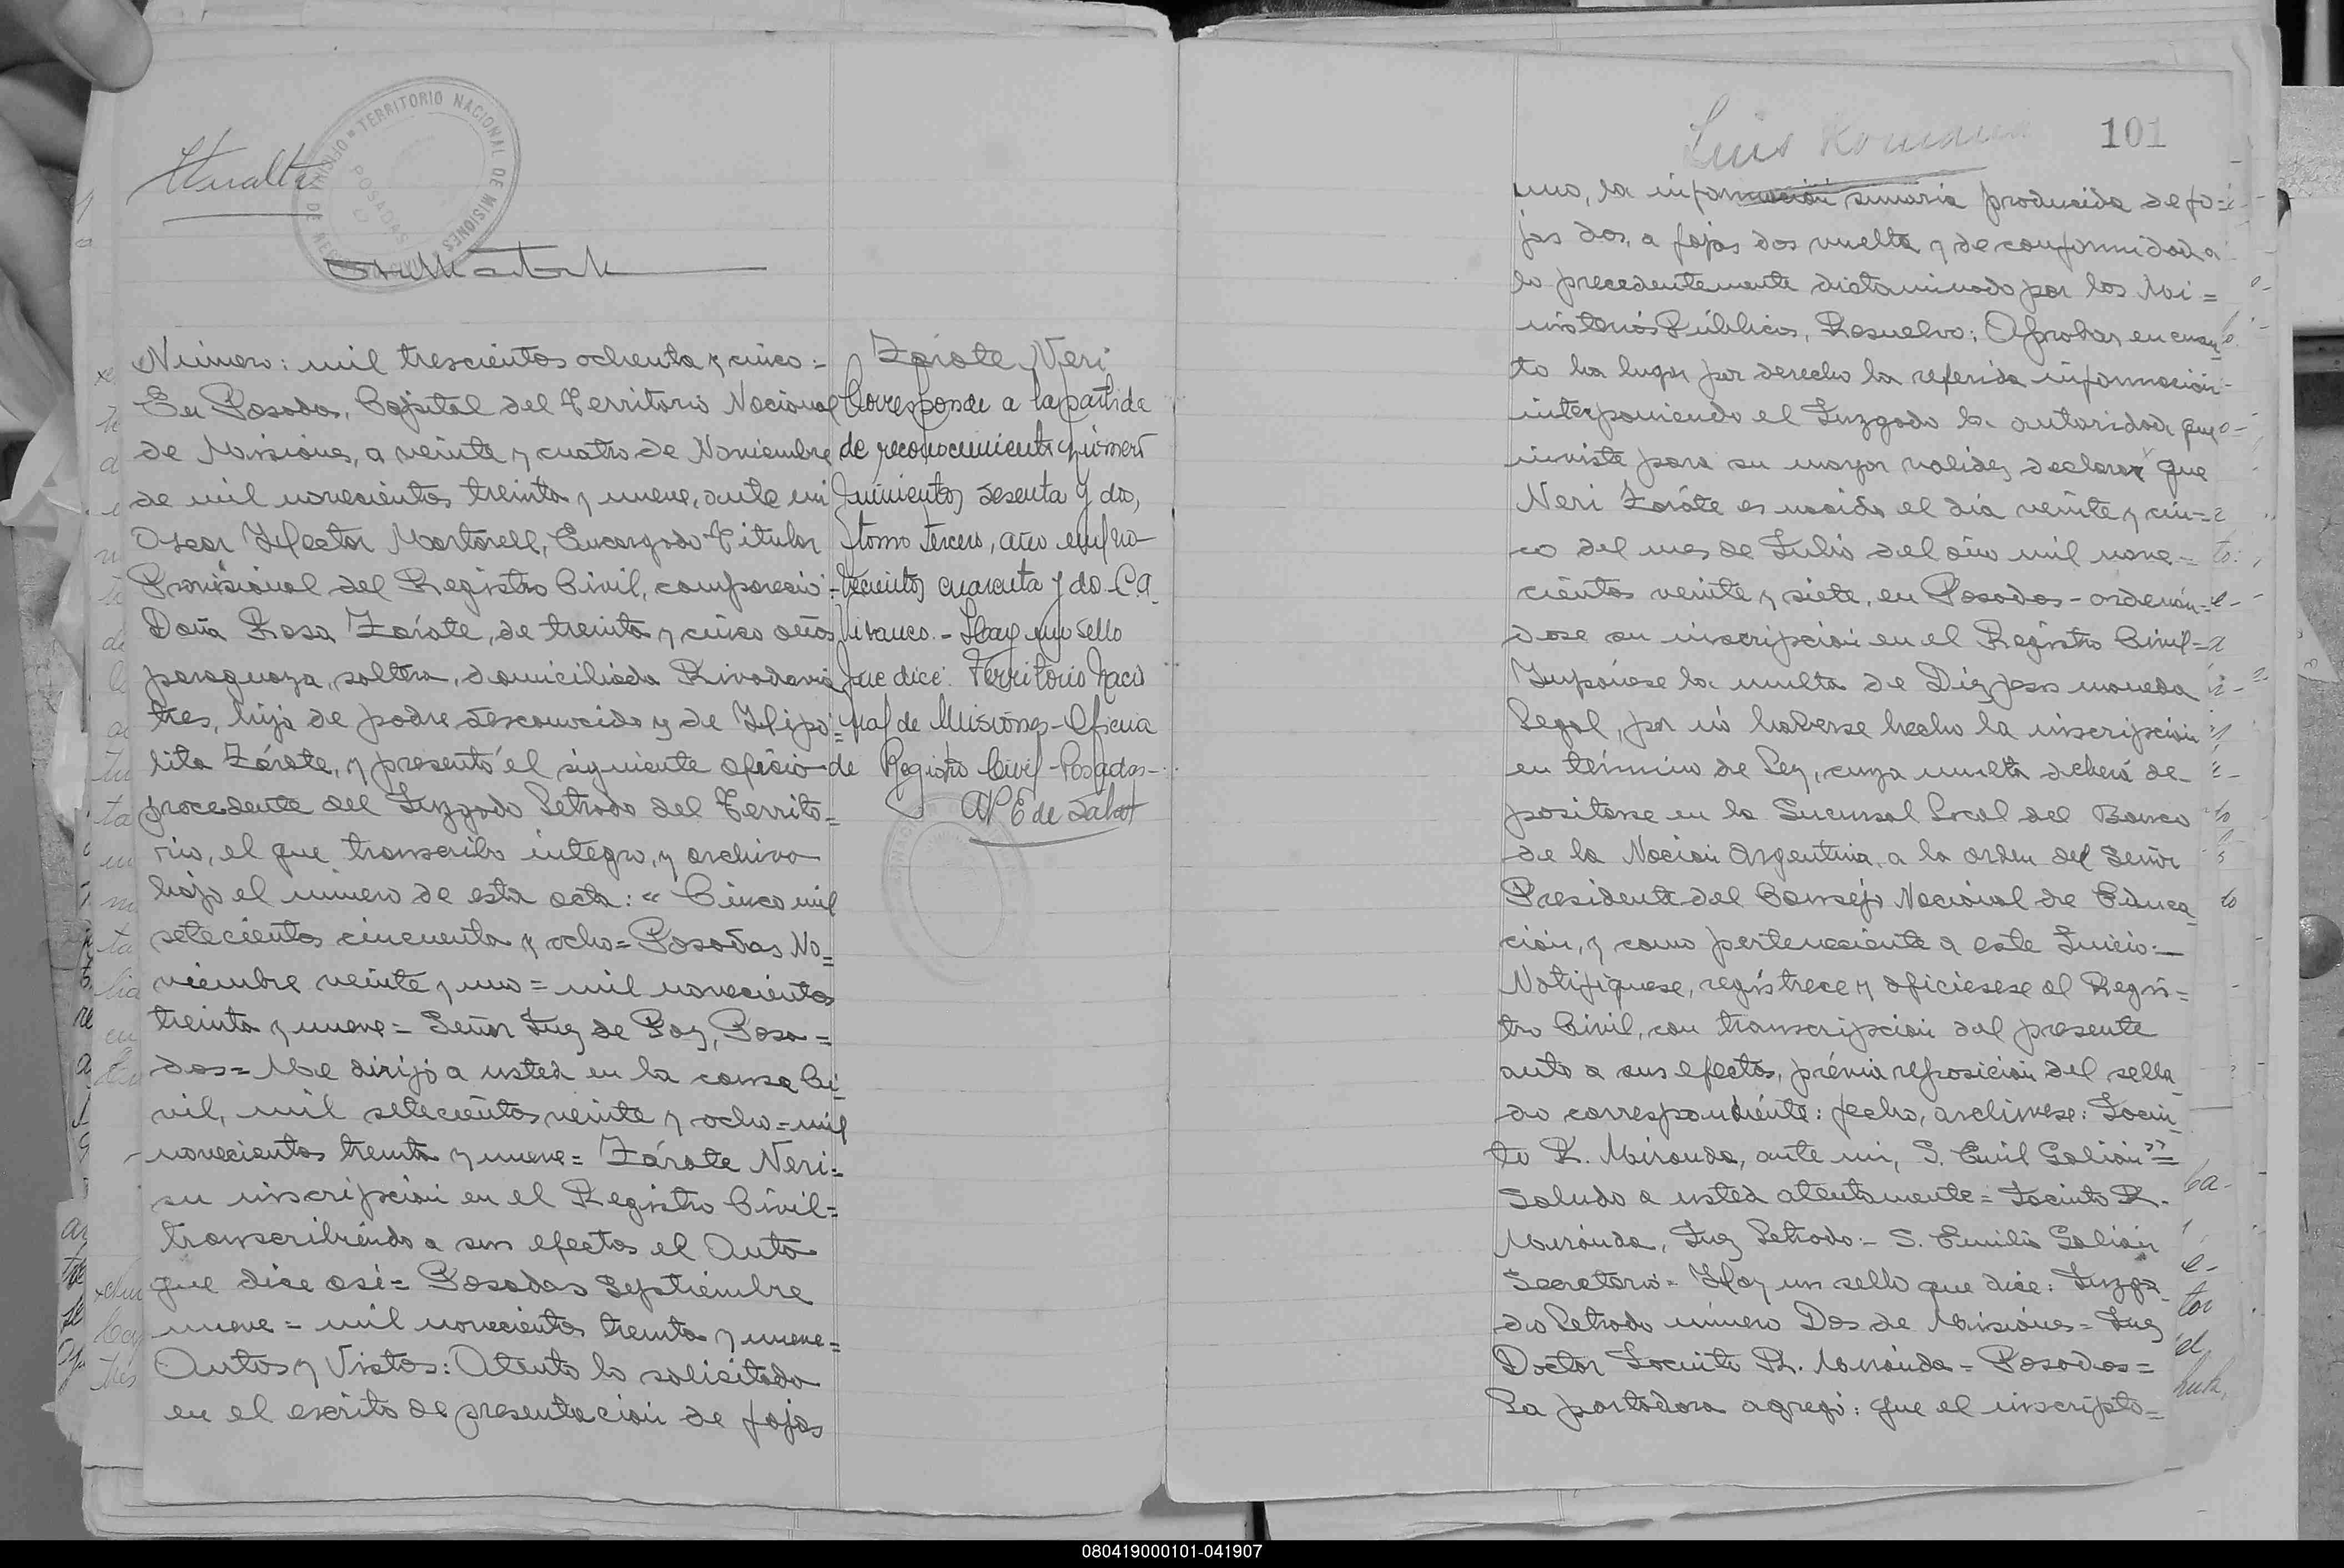 OFICINA DE REGISTRO CIVIL TERRITORIO NACIONAL DE MISIONES
POSADAS
Número: mil trescientos ochenta y cinco=
En Posadas, Capital del Territorio Nacional
de Misiones, a veinte y cuatro de Noviembre
de mil novecientos treinta y nueve, ante mi
Oscar Héctor Martorell, Encargado Titular
Provisional del Registro Civil, compareció:
Doña Rosa Zárate, de treinta y cinco años
paraguaya, soltera, domiciliada Rivadavia
tres, hija de padre desconocido y de Hipó=
lita Zárate, y presentó el siguiente oficio
procedente del Juzgado Letrado del Territo=
rio, el que transcribo integro, y archivo
bajo el número de esta acta: "Cinco mil
setecientos cincuenta y ocho= Posadas No=
viembre veinte y uno= mil novecientos
treinta y nueve= Señor Juez de Paz, Posa=
das= Me dirijo a usted en la causa Ci=
vil, mil setecientos veinte y ocho= mil
novecientos treinta y nueve= Zárate Neri=
su inscripción en el Registro Civil=
transcribiendo a sus efectos el Auto
que dice así= Posadas Septiembre
nueve= mil novecientos treinta y nueve=
Autos y Vistos: Atento lo solicitado
en el escrito de presentación de fojas
Zárate, Neri
Corresponde a la partida
de reconocimiento número
quinientos sesenta y dos,
tomo tercero, año mil no-
vecientos cuarenta y dos. C.A.
Vivanco.- Hay un sello
que dice: Territorio Nacio
nal de Misiones-Oficina
de Registro Civil-Posadas-
101
una, la información sumaria producida de fo=
jas dos, a fojas dos vuelta y de conformidad a
lo precedentemente dictaminado por los Mi=
nisterios Públicos, Resuelvo: Aprobar en cuan
to ha lugar por derecho la referida información
interponiendo el Juzgado la autoridad que
inviste para su mayor validez declarar que
Neri Zaráte es nacido el día veinte y cin=
co del mes de Julio del año mil nove=
cientos veinte y siete, en Posadas- ordenán=
dose su inscripción en el Registro Civil=
Impónese la multa de Diez pesos moneda
Legal, por nó haberse hecho la inscripción
en término de Ley, cuya multa deberá de-
positarse en la Sucursal Local del Banco
de la Nación Argentina, a la orden del Señor
Presidente del Consejo Nacional de Educa
ción, y como perteneciente a este Juicio:—
Notifíquese, regístrece y ofíciesese al Regis=
tro Civil, con transcripción del presente
auto a sus efectos, prévia reposición del sella
do correspondiente: fecho, archívese: Jacin
to R. Miranda, ante mi, S. Emil Galián"=
Saludo a usted atentamente= Jacinto R.
Miranda, Juez Letrado:- S. Emilio Galián
Secretario- Hay un sello que dice: Juzga
do Letrado número Dos de Misiones= Juez
Doctor Jacinto R. Miranda- Posadas=
La portadora agregó: que el inscripto=
080419000101-041907